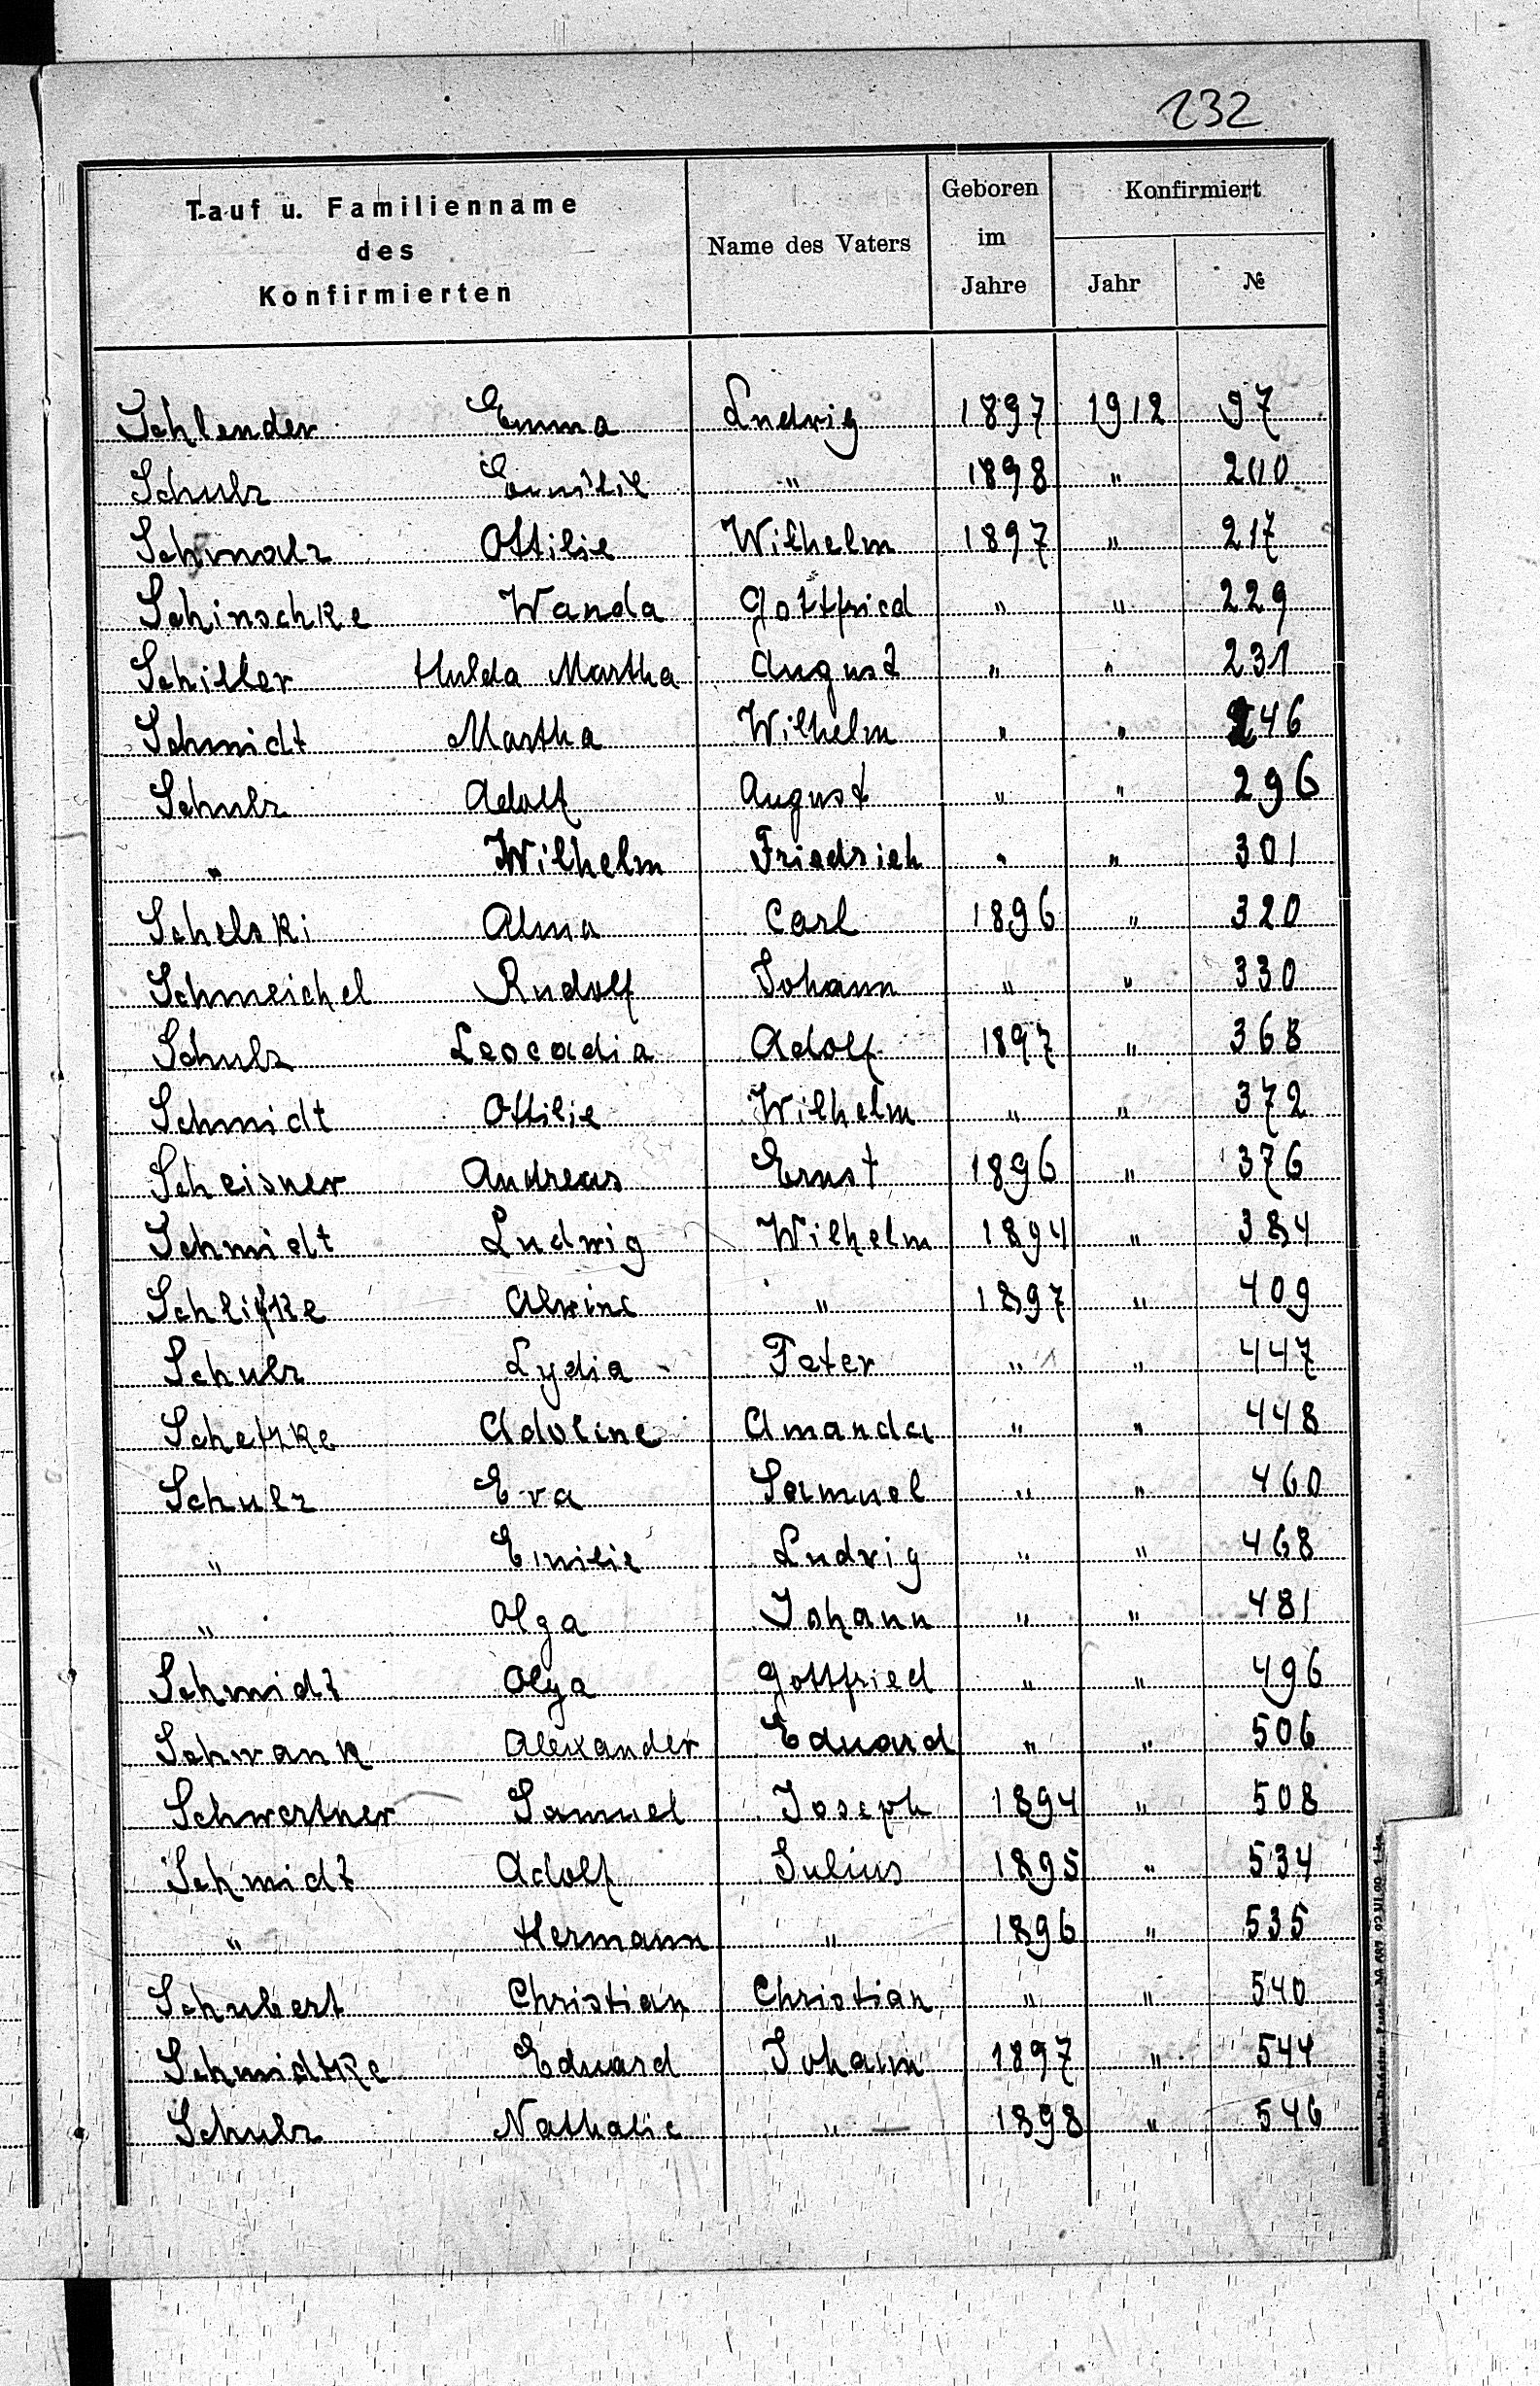 232
Tauf u. Familienname des Konfirmierten | Name des Vaters | Geboren im Jahre | Konfirmiert Jahr | №
Schlender Emma Ludwig 1897 1912 97
Schulz Emilie " 1898 " 200
Schmalz Ottilie Wilhelm 1897 " 217
Schinschke Wanda Gottfried " " 229
Schiller Hulda Martha August " " 231
Schmidt Martha Wilhelm " " 246
Schulz Adolf August " " 296
" Wilhelm Friedrich " " 301
Schelski Alma Carl 1896 " 320
Schmeichel Rudolf Johann " " 330
Schulz Leocadia Adolf 1897 " 368
Schmidt Ottilie Wilhelm " " 372
Scheisner Andreas Ernst 1896 " 376
Schmidt Ludwig Wilhelm 1894 " 384
Schlifke Alwine " 1897 " 409
Schulz Lydia Peter " " 447
Schetzke Adoline Amanda " " 448
Schulz Eva Samuel " " 460
" Emilie Ludwig " " 468
" Olga Johann " " 481
Schmidt Olga Gottfried " " 496
Schwank Alexander Eduard " " 506
Schwertner Samuel Joseph 1894 " 508
Schmidt Adolf Julius 1895 " 534
" Hermann " 1896 " 535
Schubert Christian Christian " " 540
Schmidtke Eduard Johann 1897 " 544
Schulz Nathalie " 1898 " 546